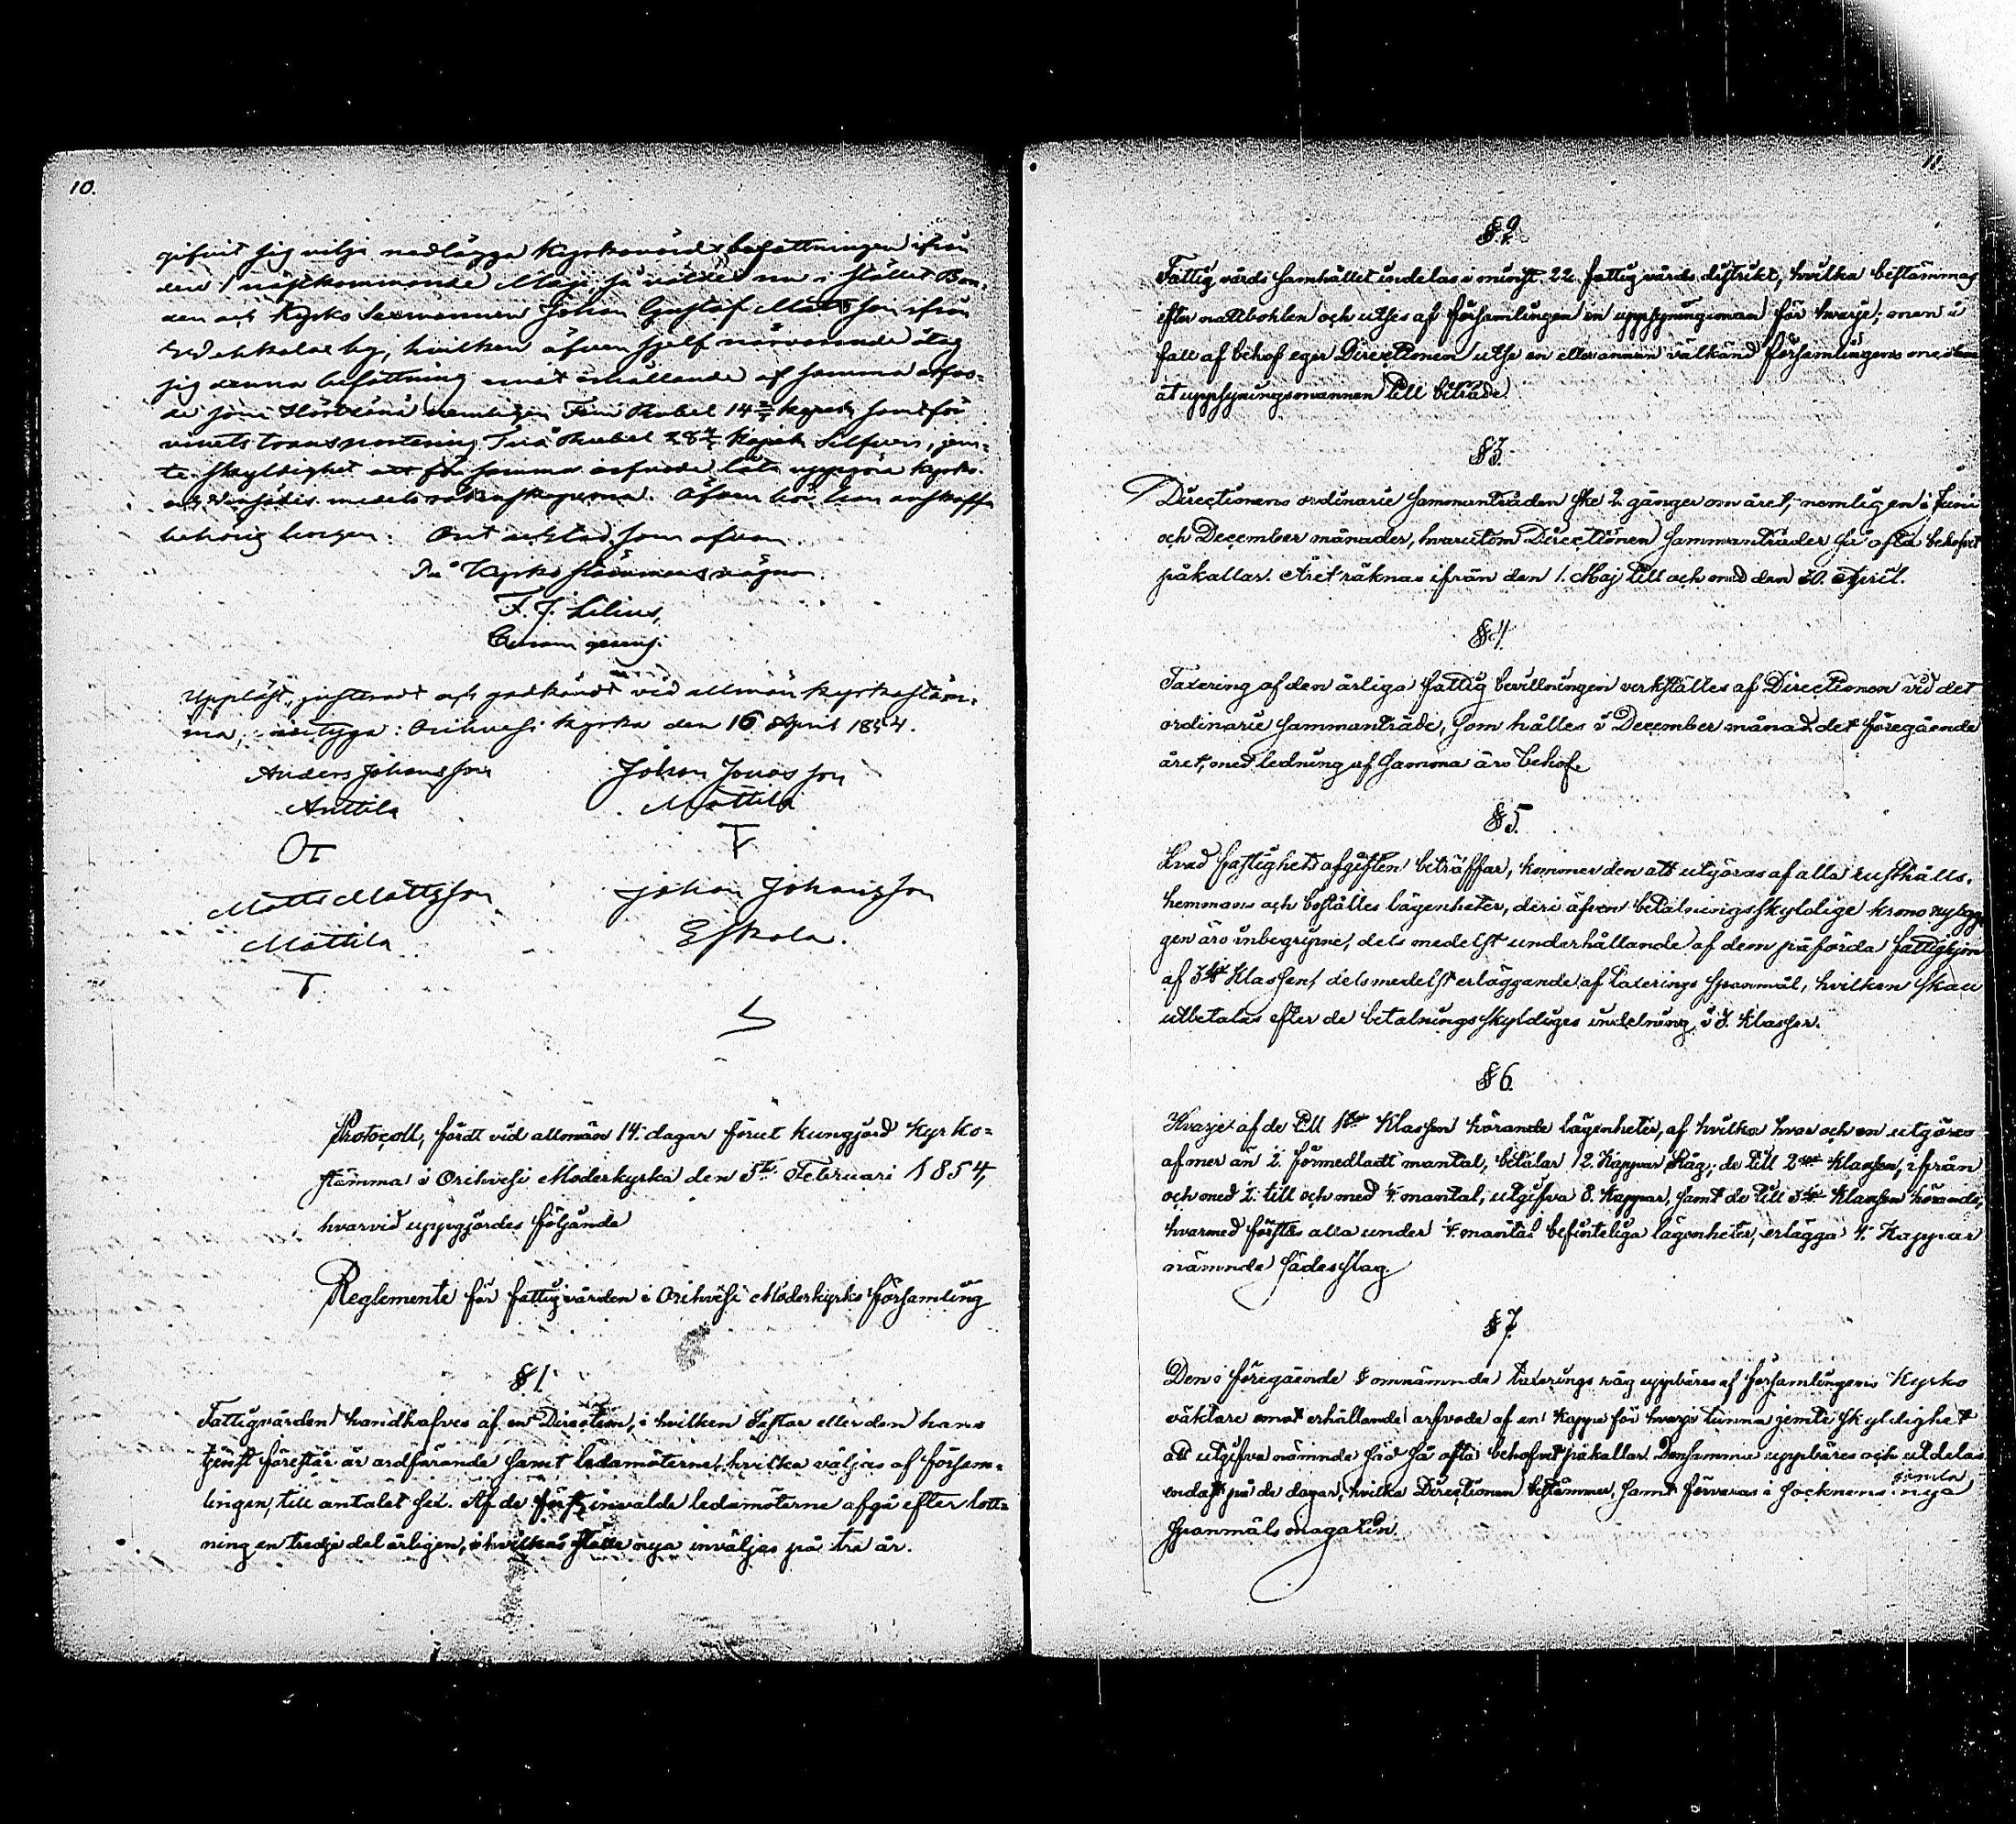 10.
gifvit sig vilja nedlägga Kyrkovärds befattningen ifrån
den 1 nästkommande Maji, så valdes nu i stället Bon-
den och Kyrko Sexmannen Johan Gustaf Mattsson ifrån
by, hvilken äfven sjelf närvarande åtog
sig denna befattning emot erhållande af samma arfvo-
de som nemligen Fem Rubel 14 2/7 kopek samt för
vinets transportering Två Rubel 28 4/7 Kopek Silfver, jem-
te skyldighet att för samma arfvode låta uppgöra kyrko-
och medels räkenskaperna. Äfven bör han anskaffa
behörig borgen. Ort och tid som ofvan.
På Kyrko stämmans vägnar
F. J. Lilius,
Curam gerens.
Uppläst, justeradt och godkändt vid allmän kyrkostäm-
ma, intyga: Orihvesi kyrka den 16 April 1854.
Anders Johansson Johan Jonasson
Anttila Mattila
Matts Mattsson Johan Johansson
Mattila Eskola.
Protocoll, fördt vid allmän 14. dagar förut kungjord Kyrko=
stämma i Orihvesi Moderkyrka den 5te Februari 1854,
hvarvid uppgjordes följande
Reglemente för fattigvården i Orihvesi Moderkyrko församling
§ 1.
Fattigvården handhafves af en Direction, i hvilken Pastor eller den hans
tjenst förestår är ordförande samt ledamöterne, hvilka väljas af försam-
lingen, till antalet sex. Af de först invalde ledamöterne afgå efter lott=
ning en tredje del årligen, i hvilkas ställe nya inväljas på tre år.
11.
§ 2.
Fattig vårds samhället indelas i minst 22 fattig vårds distrikt, hvilka bestämmas
efter nattbohlen och utses af församlingen en uppsyningsman för hvarje; men i
fall af behof eger Directionen utse en eller annan välkänd församlingens medlem
åt uppsyningsmannen till biträde.
§ 3.
Directionens ordinarie sammanträden ske 2. gånger om året, nemligen i Juni
och December månader, hvarutom Directionen sammanträder så ofta behofvet
påkallar. Året räknas ifrån den 1. Maj till och med den 30. April.
§ 4.
Taxering af den årliga fattig bevillningen verkställes af Directionen vid det
ordinarie sammanträde, som hålles i December månad det föregående
året, med ledning af samma års behof.
§ 5.
Hvad fastighets afgiften beträffar, kommer den att utgöras af alla rusthålls,
hemmans och boställes lägenheter, deri äfven betalningsskyldige krono nybyg
gen äro inbegripne, dels medelst underhållande af dem påförda fattighjon
af 3dje Klassen, dels medelst erläggande af taxerings spanmål, hvilken skall
utbetalas efter de betalningsskyldiges indelning i 3. Klasser.
§ 6.
Hvarje af de till 1sta Klassen hörande lägenheter, af hvilka hvar och en utgöres
af mer än ½. förmedladt mantal, betalar 12. Kappar Råg; de till 2dra Klassen, ifrån
och med ½. till och med ¼. mantal, utgifva 8. Kappar, samt de till 3dje Klassen hörande,
hvarmed förstås alla under ¼. mantal befinteliga lägenheter, erlägga 4. Kappar
nämnde sädesslag.
§ 7.
Den i föregående § omnämnda taxerings råg uppbäres af församlingens Kyrko
väktare emot erhållande arfvode af en kappe för hvarje tunna jemte skyldighet
att utgifva nämnde säd så ofta behofvet påkallar. Densamma uppbäres och utdelas
endast på de dagar, hvilka Directionen bestämmer, samt förvaras i Socknens nya
gamla
spanmåls magasin.